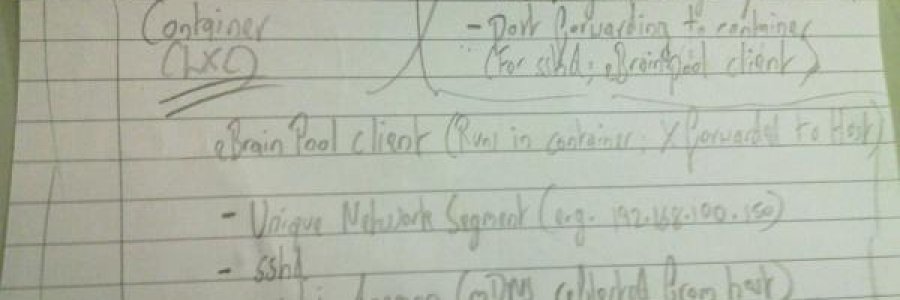 Container
(LXC)
- Port forwarding to container
(For sshd, eBrainPool client)
eBrainPool client (Runs in container, X forwarded to Host)
- Unique Network Segment (e.g. 192.168.100.150)
- sshd
(mDNS reflected from host)